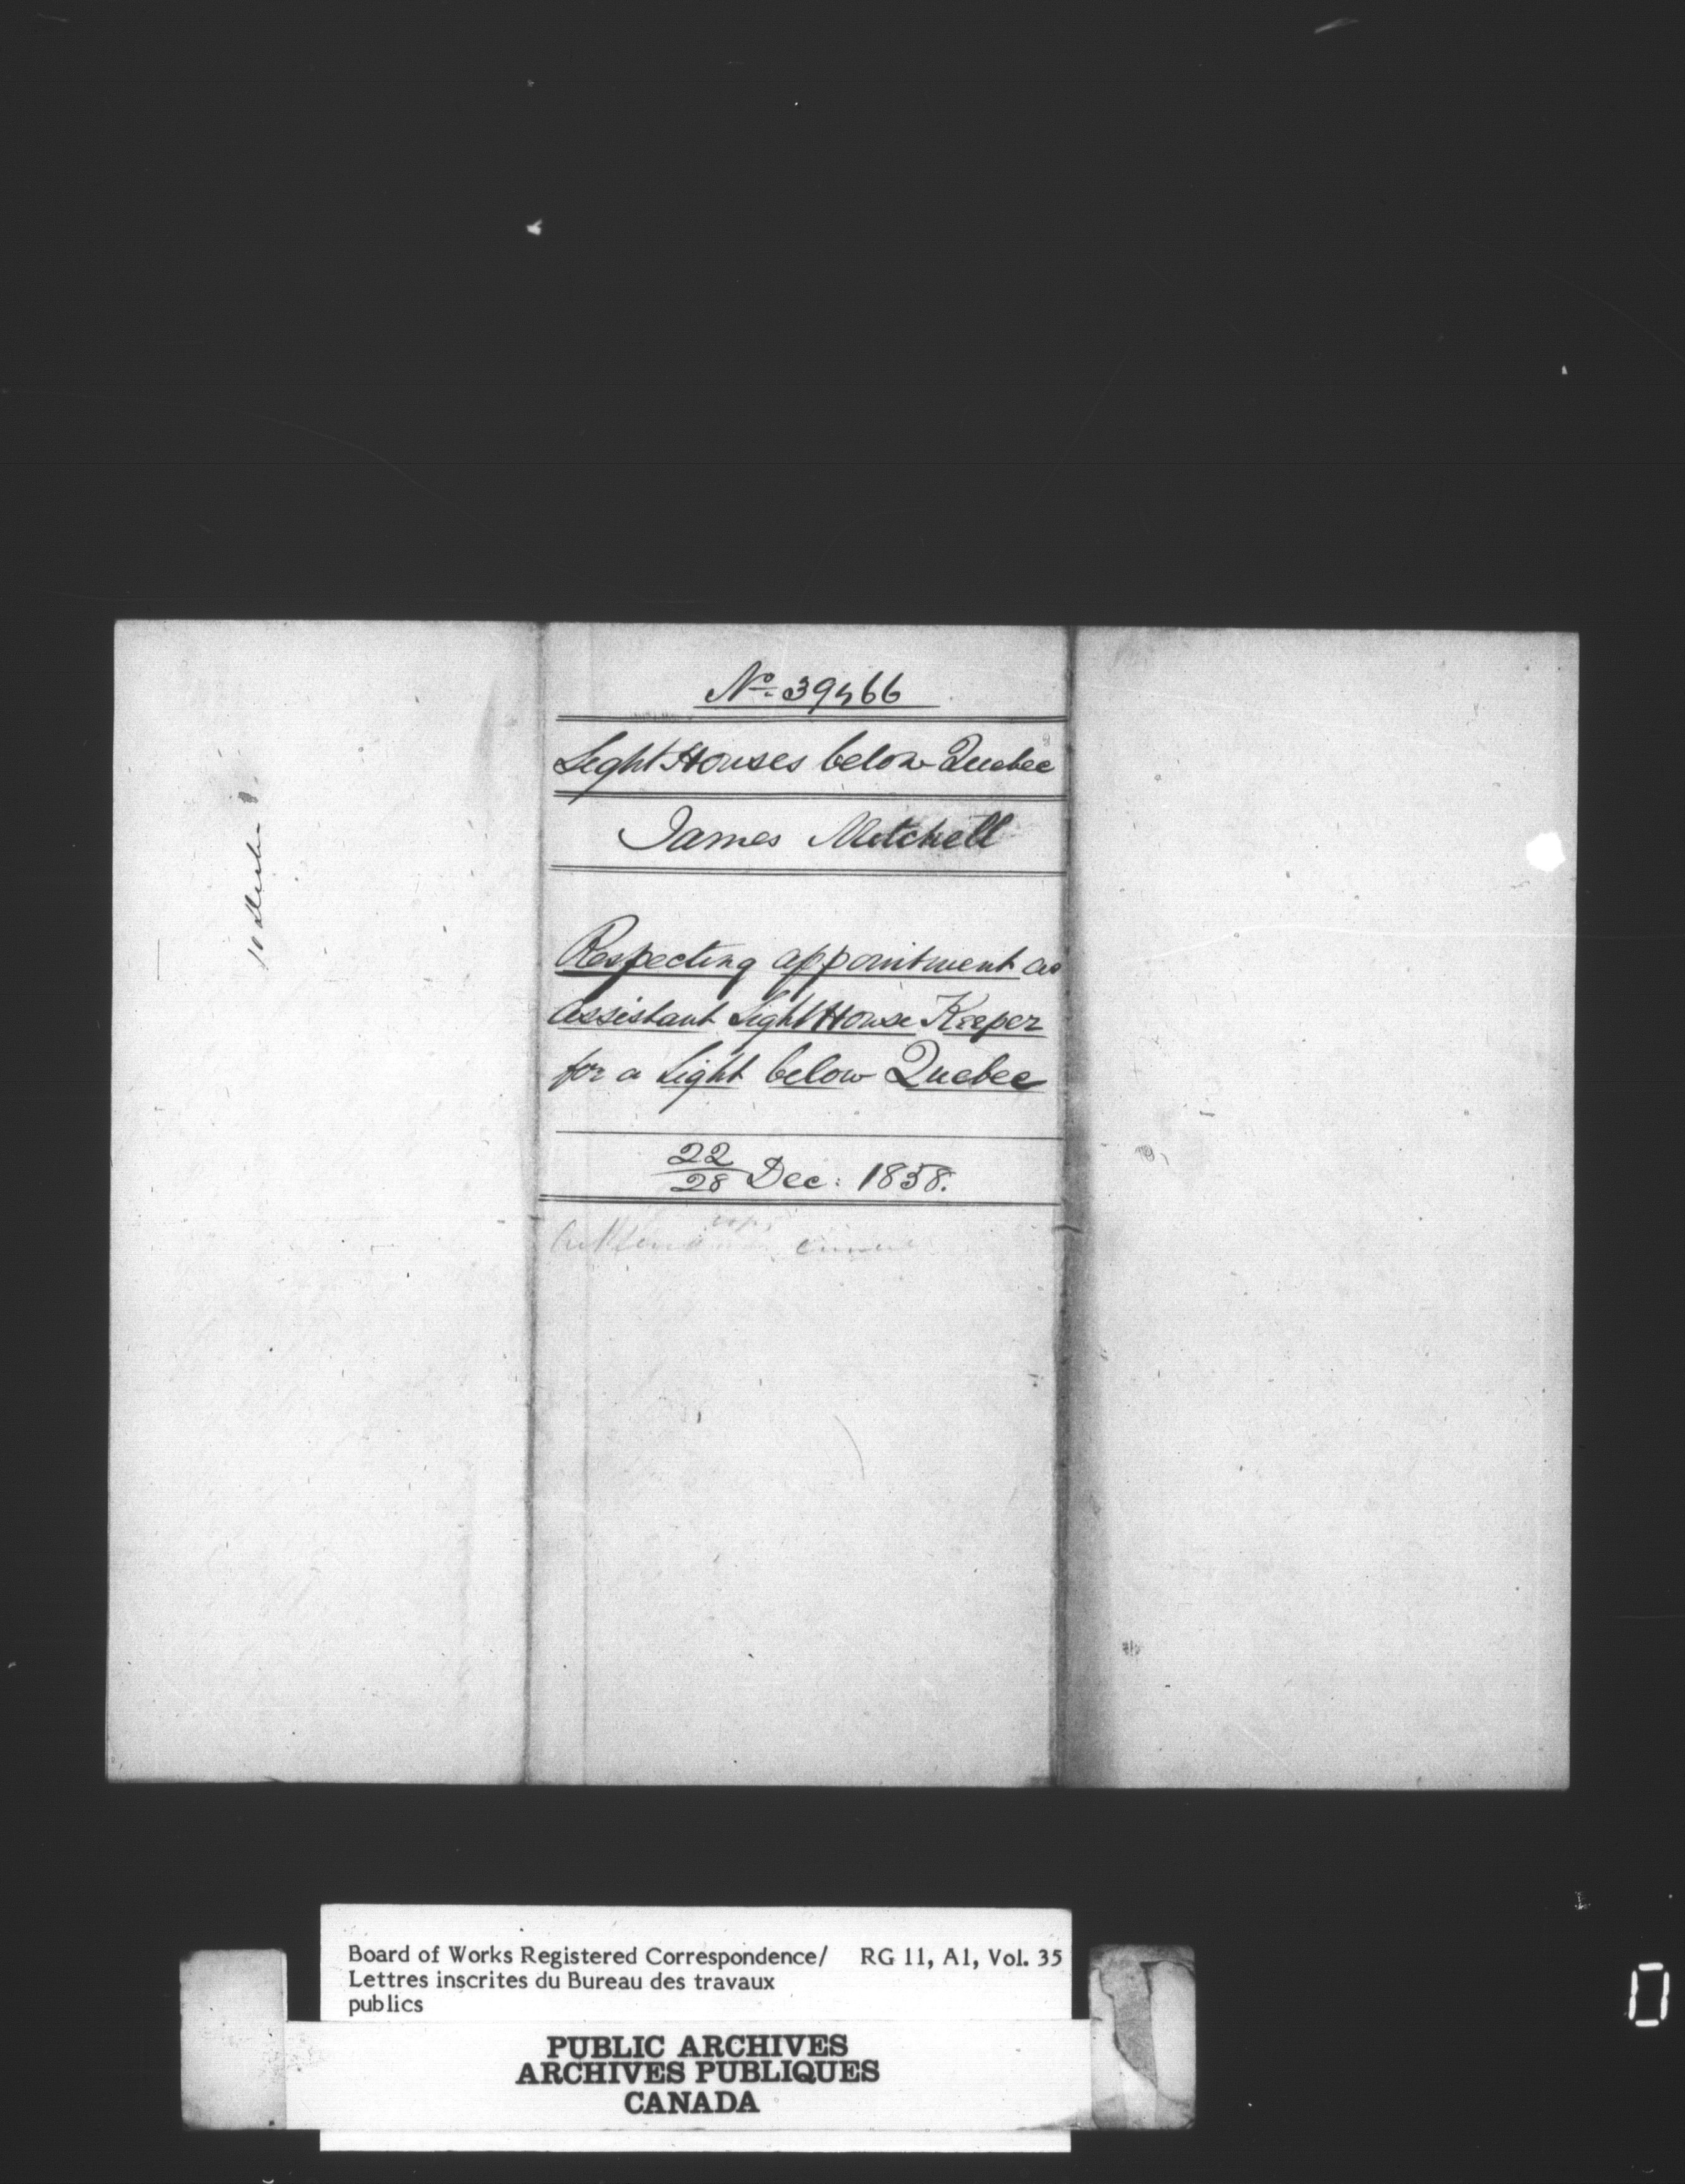 No. 39466
Light Houses below Quebec
James Mitchell
Respecting appointment as
assistant Light House Keeper
for a Light below Quebec
22/28 Dec: 1858.
Board of Works Registered Correspondence/ RG 11, A1, Vol. 35
Lettres inscrites du Bureau des travaux
publics
PUBLIC ARCHIVES
ARCHIVES PUBLIQUES
CANADA